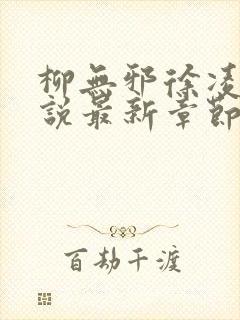 柳無邪徐凌
說最新章節
百劫千渡